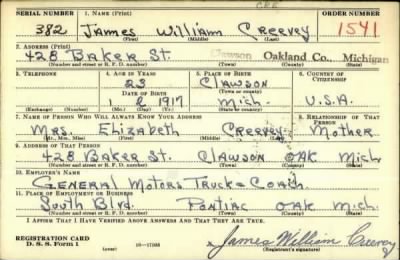 C.P.S.
SERIAL NUMBER 1. NAME (Print) ORDER NUMBER
382 James William Creevey 1541
(First) (Middle) (Last)
2. ADDRESS (Print)
428 Baker St. Clawson Oakland Co., Michigan
(Number and street or R. F. D. number) (Town) (County) (State)
3. TELEPHONE 4. AGE IN YEARS 5. PLACE OF BIRTH 6. COUNTRY OF CITIZENSHIP
23 Clawson
DATE OF BIRTH (Town or county)
1 2 1917 Mich. U.S.A.
(Exchange) (Number) (Mo.) (Day) (Yr.) (State or country)
7. NAME OF PERSON WHO WILL ALWAYS KNOW YOUR ADDRESS 8. RELATIONSHIP OF THAT PERSON
Mrs. Elizabeth Creevey Mother
(Mr., Mrs., Miss) (First) (Middle) (Last)
9. ADDRESS OF THAT PERSON
428 Baker St. Clawson Oak Mich
(Number and street or R. F. D. number) (Town) (County) (State)
10. EMPLOYER'S NAME
General Motors Truck & Coach
11. PLACE OF EMPLOYMENT OR BUSINESS
South Blvd. Pontiac Oak Mich.
(Number and street or R. F. D. number) (Town) (County) (State)
I AFFIRM THAT I HAVE VERIFIED ABOVE ANSWERS AND THAT THEY ARE TRUE.
REGISTRATION CARD
D. S. S. Form 1 (over) 16—17105 James William Creevey
(Registrant's signature)